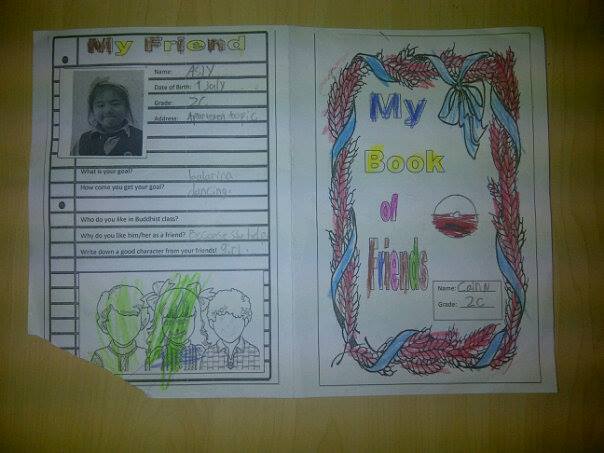 My Friend
Name: ASLY
Date of Birth: 1 July
Grade: 2C
Address: Apartemen tropic
What is your goal? balarina
How come you get your goal? dancing.
Who do you like in Buddhist class?
Why do you like him/her as a friend? Because she
Write down a good character from your friends! girl.
My
Book
of
Friends
Name:
Grade: 2C